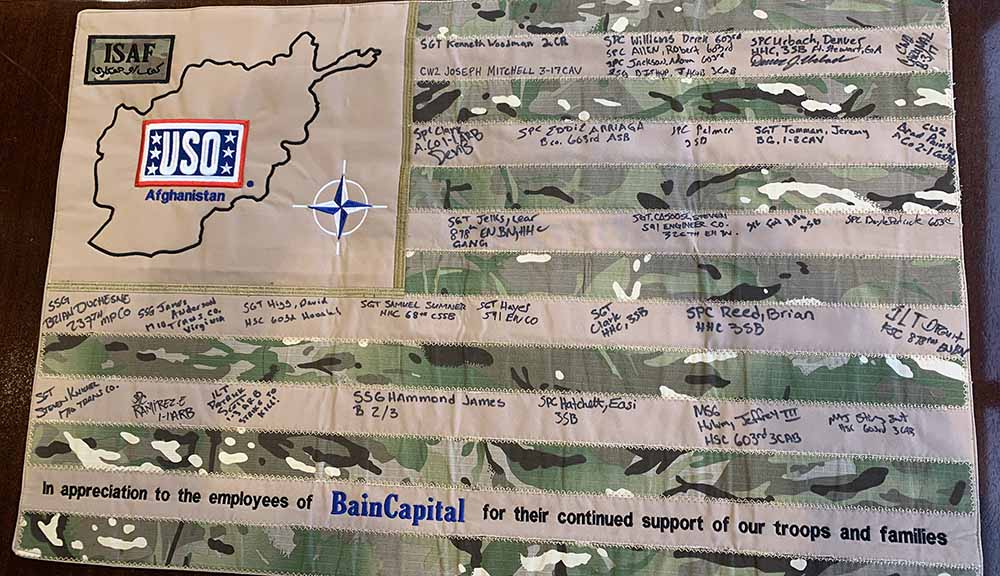 ISAF
USO
Afghanistan
SGT Kenneth Woodman 2CR
CW2 JOSEPH MITCHELL 3-17 CAV
SPC Williams Derek 603rd
SPC Allen, Robert 603rd
SPC Jackson, 603rd
SSG BISHUP, JACOB 3CAB
SPC Urbach, Denver
HHC, 3SB Ft. Stewart, GA
SPC Clark
A Co 1-1 ARB
SPC Eddie ARRIAGA
B co. 603rd ASB
SPC Palmer
3SB
SGT Tomman, Jeremy
BG. 1-8 CAV
CW2
Brad
A Co 2-1
SGT Jelks, Lear
878th EN BN, HHC
GANG
SGT. STEVEN
591 ENGINEER CO.
326TH EN BN.
SPC 603rd
SSG
BRIAN DUCHESNE
237TH MP CO
SSG James
Anderson
1710 Trans Co.
Virginia
SGT Higg, David
HSC 603rd
SGT SAMUEL SUMNER
HHC 68th CSSB
SGT Hayes
591 EN CO
SGT
Clark
HHC, 3SB
SPC Reed, Brian
HHC 3SB
1LT
FSC 878th EN BN
SGT
Steven
1710 TRANS CO.
SPC
RAMIREZ. E
1-1ARB
1LT
1-1 ARB
SSG Hammond James
B 2/3
SPC Hatchett, Easi
3SB
MSG
Jeffrey III
HSC 603rd 3CAB
HSC 603rd 3CAB
In appreciation to the employees of BainCapital for their continued support of our troops and families